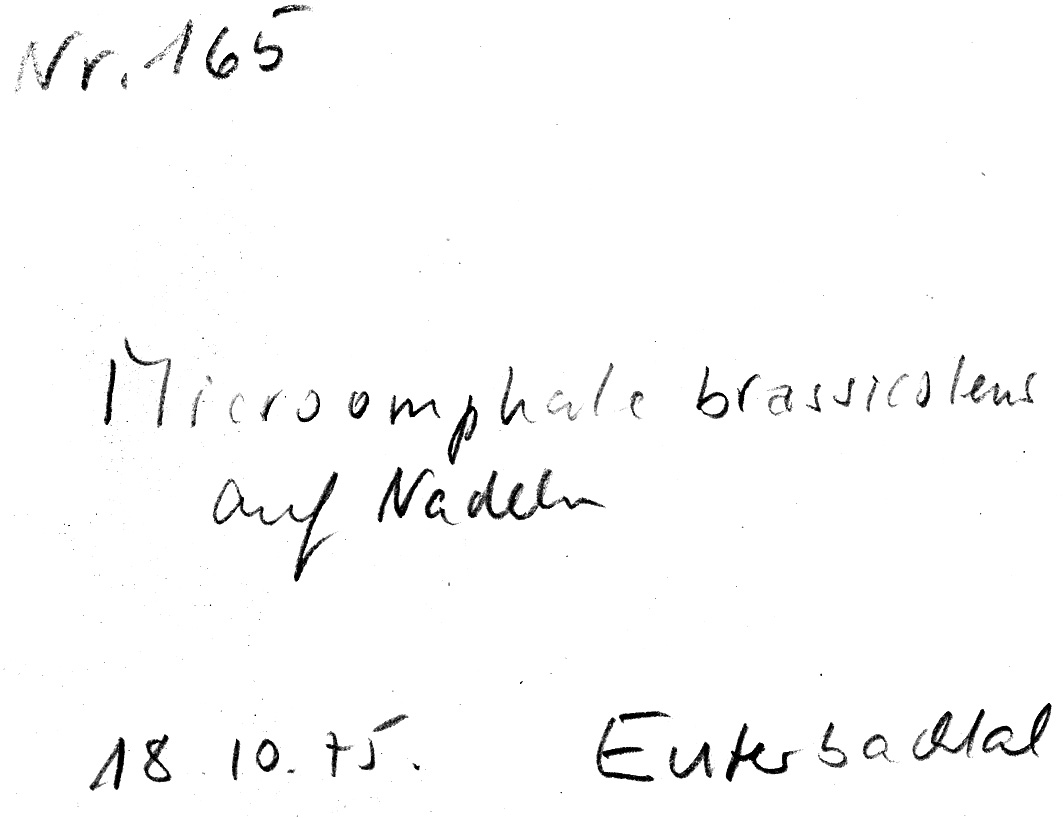 Nr. 165
Microomphale brassicolens
auf Nadeln
18 10. 75. Euterbachtal